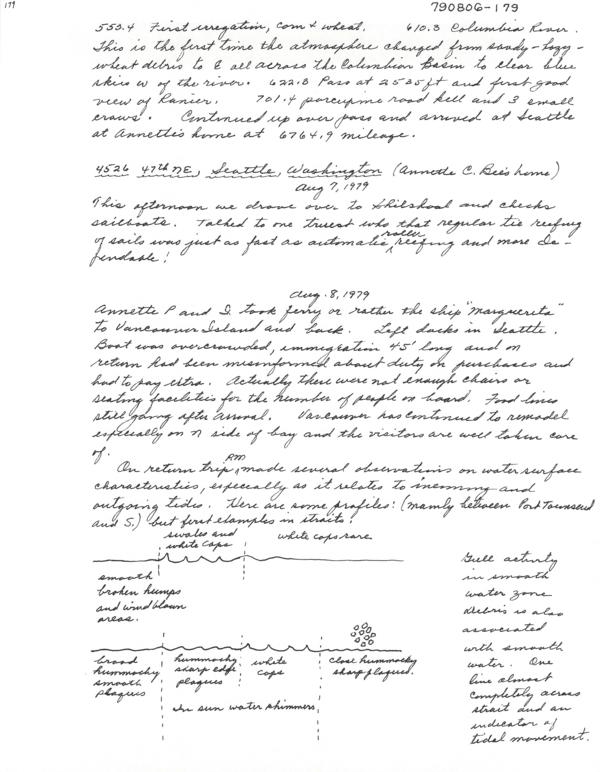 179
790806-179
553.4 First irregation, corn & wheat. 610.3 Columbia River.
This is the first time the atmosphere changed from sandy-hazy-
wheat debris to E all across the Columbian Basin to clear blue
skies W of the river. 622.8 Pass at 2535 ft and first good
view of Ranier. 701.4 porcupine road kell and 3 small
craws. Continued up over pass and arrived at Seattle
at Annette's home at 6764.9 mileage.
4526 47th NE, Seattle, Washington (Annette C. Bee's home)
Aug 7, 1979
This afternoon we drove over to Shilshoal and checks
sailboats. Talked to one truest who that regular tie reefing
of sails was just as fast as automatic roller reefing and more de-
pendable!
Aug. 8, 1979
Annette P and I took ferry or rather the ship "Marguerita"
to Vancouver Island and back. Left docks in Seattle.
Boat was overcrowded, immegration 45' long and on
return had been misinformed about duty on purchases and
had to pay extra. Actually there were not enough chairs or
seating facilities for the number of people on board. Food lines
still going after arrival. Vancouver has continued to remodel
especially on N side of bay and the visitors are well taken care
of.
On return trip, PM made several observations on water surface
characteristics, especially as it relates to incoming and
outgoing tides. Here are some profiles: (mainly between Port Townsend
and S.) but first examples in straits!
swales and
white caps
white caps rare
smooth
broken humps
and wind blown
areas.
broad
hummocky
smooth
plaques
hummochy
sharp edge
plaques
white
caps
close hummocky
sharp plaques.
In sun water shimmers
Gull activity
in smooth
water zone
Debris is also
associated
with smooth
water. One
line almost
completely across
strait and an
indicator of
tidal movement.